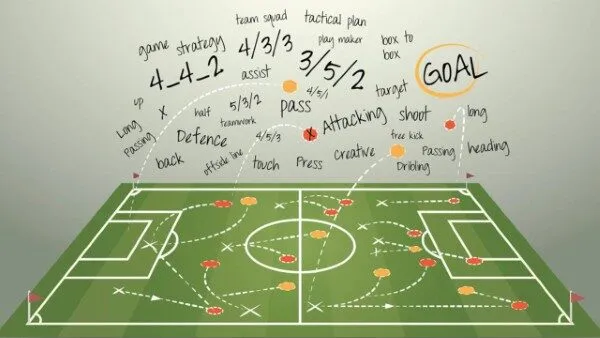 team squad
tactical plan
game strategy
4/3/3
play maker
box to
box
4_4_2
assist
3/5/2
GOAL
4/5/1
target
up
X
half
5/3/2
pass
Attacking
shoot
long
Long
Passing
teamwork
Defence
4/5/3
X
free kick
back
offside line
touch
Press
Creative
Passing
Dribling
heading